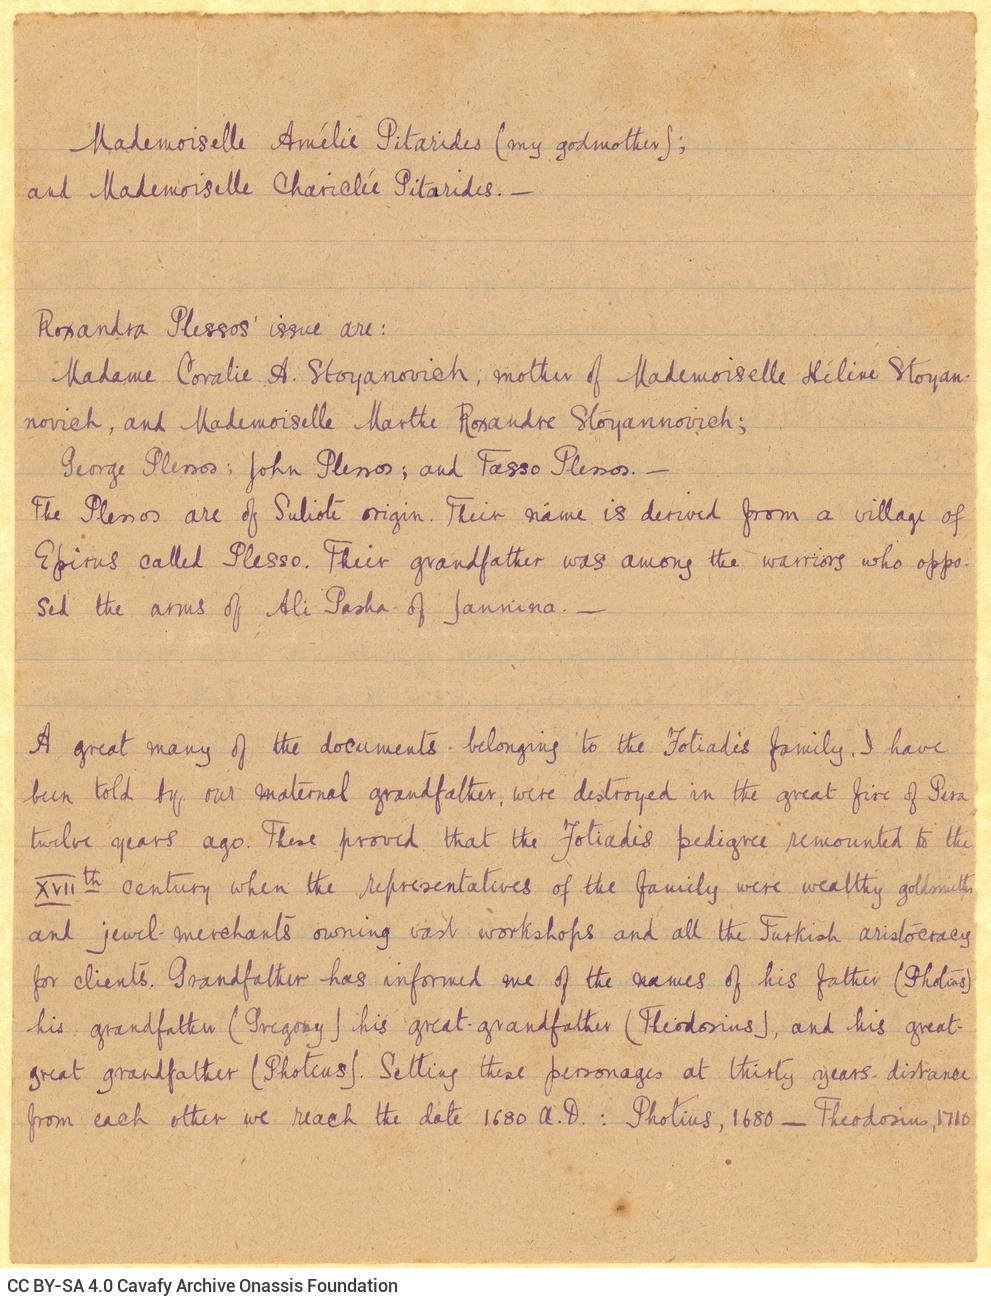 Mademoiselle Amélie Pitarides (my godmother);
and Mademoiselle Chariclée Pitarides. —
Roxandra Plessos' issue are:
Madame Coralie A. Stoyanovich, mother of Mademoiselle Hélène Stoyan-
novich, and Mademoiselle Marthe Roxandre Stoyannovich;
George Plessos; John Plessos; and Tasso Plessos. —
The Plessos are of Suliote origin. Their name is derived from a village of
Epirus called Plesso. Their grandfather was among the warriors who oppo-
sed the arms of Ali Pasha of Jannina. —
A great many of the documents belonging to the Fotiadis family, I have
been told by our maternal grandfather, were destroyed in the great fire of Pera
twelve years ago. These proved that the Fotiadis pedigree remounted to the
XVII th century when the representatives of the family were wealthy goldsmiths
and jewel-merchants owning vast workshops and all the Turkish aristocracy
for clients. Grandfather has informed me of the names of his father (Photius)
his grandfather (Gregory) his great-grandfather (Theodosius), and his great-
great grandfather (Photius). Setting these personages at thirty years distance
from each other we reach the date 1680 A.D.: Photius, 1680 — Theodosius, 1710
CC BY-SA 4.0 Cavafy Archive Onassis Foundation